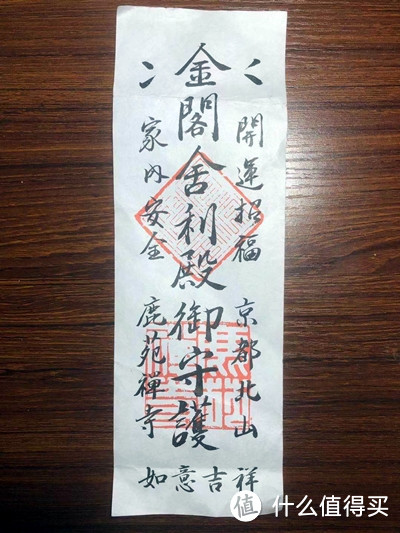 開運招福
京都北山
金閣舍利殿御守護
家内安全
鹿苑禪寺
如意吉祥
值 什么值得买